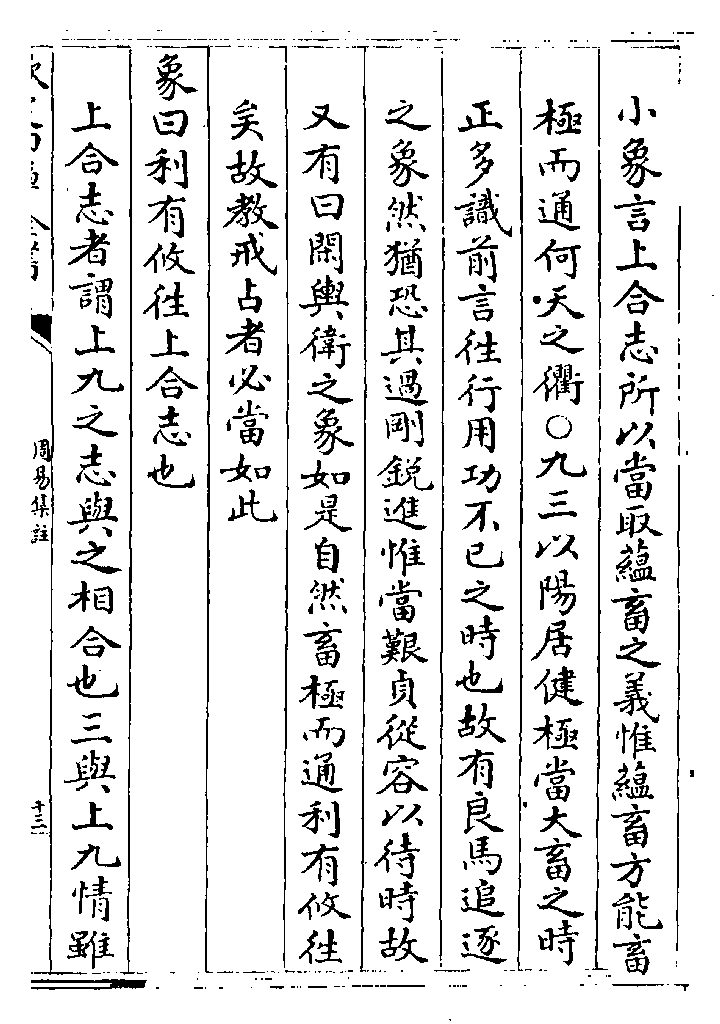 小象言上合志所以當取蘊畜之義惟蘊畜方能畜
極而通何天之衢○九三以陽居健極當大畜之時
正多識前言往行用功不已之時也故有良馬追逐
之象然猶恐其過剛鋭進惟當艱貞從容以待時故
又有曰閑輿衛之象如是自然畜極而通利有攸往
矣故教戒占者必當如此
象曰利有攸往上合志也
上合志者謂上九之志與之相合也三與上九情雖
周易集註
十三